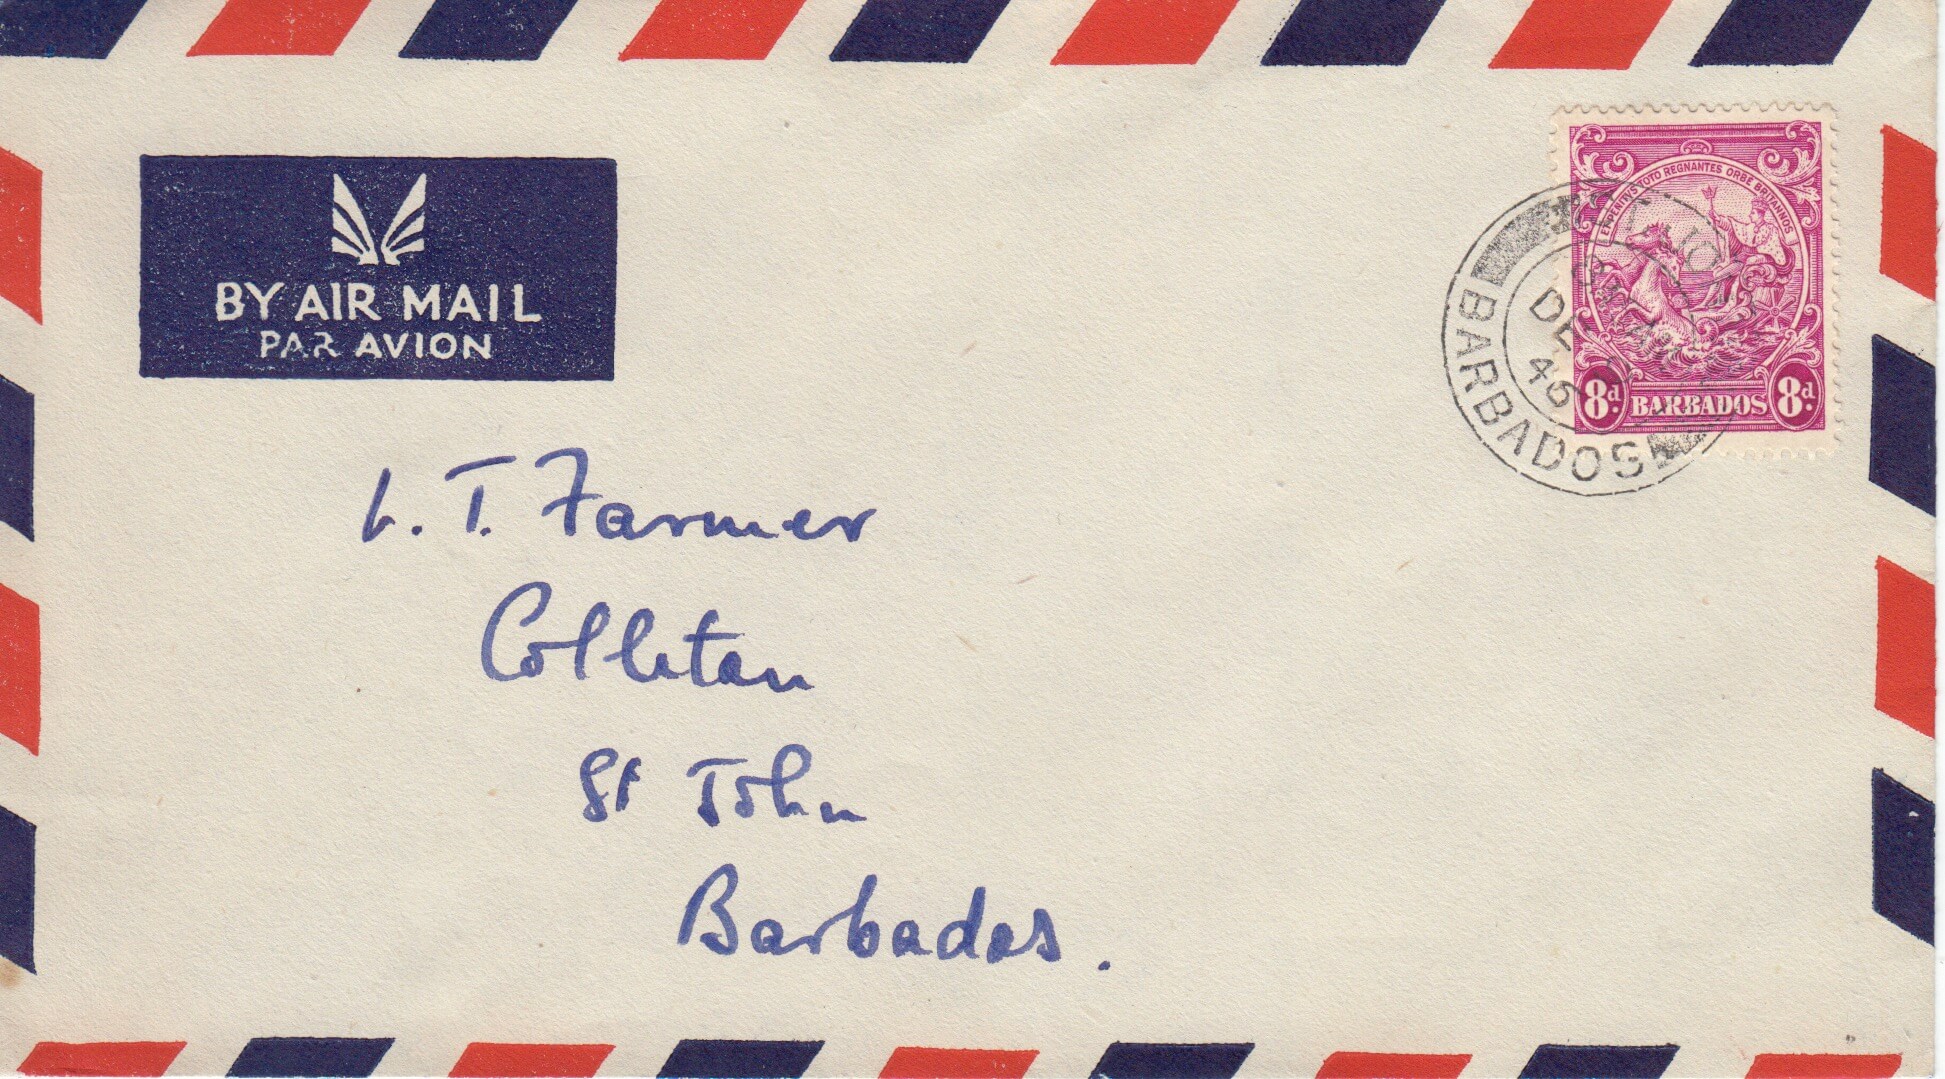 BY AIR MAIL
PAR AVION
ET PENITVS TOTO REGNANTES ORBE BRITANNOS
8d. BARBADOS 8d.
DE
46
BARBADOS
L. T. Farmer
Colleton
St John
Barbados.